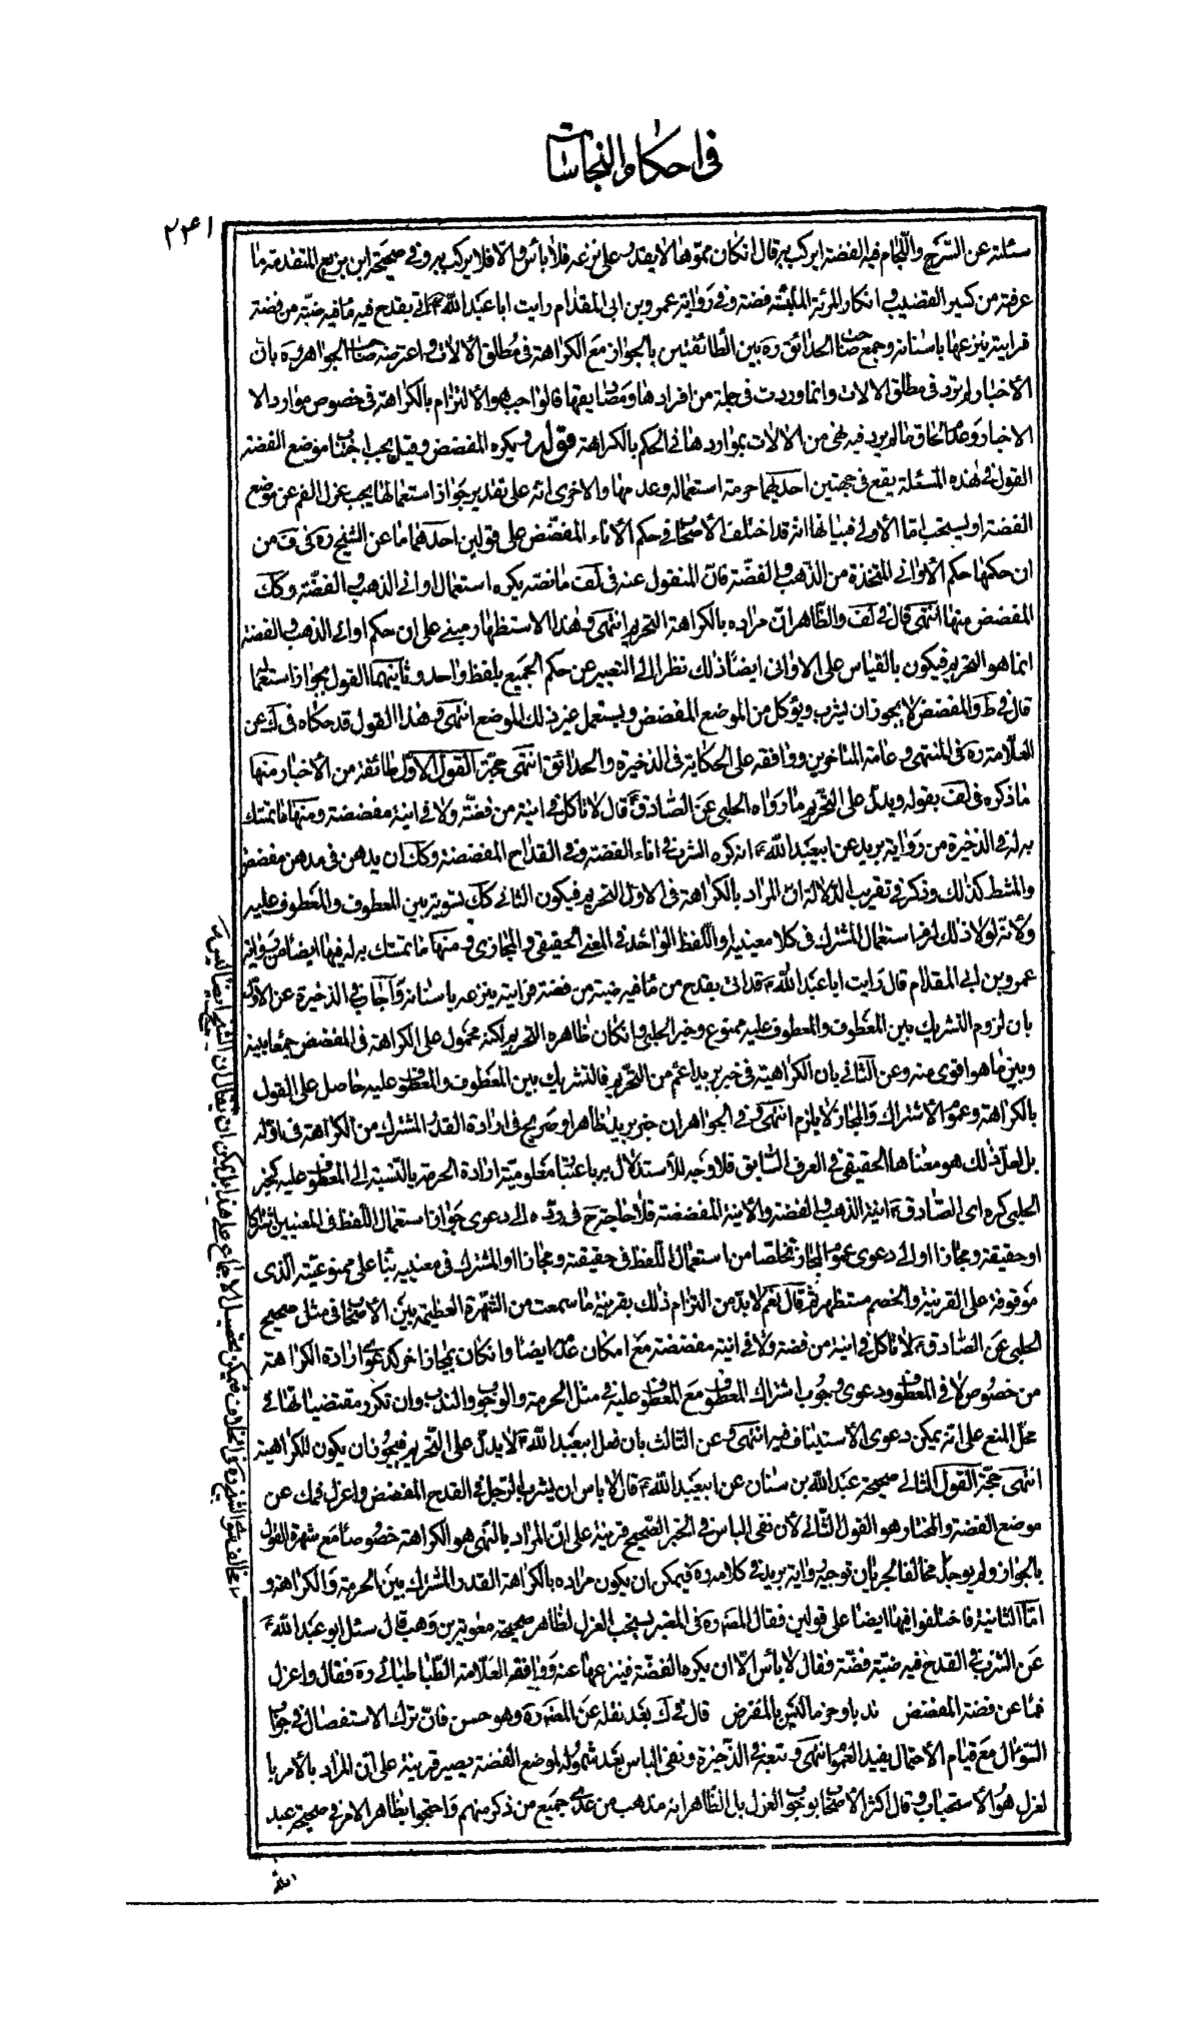 في احكام النجاسات
٢٤١
سئلته عن السّرج واللّجام فيه الفضة ايركب به قال ان كان مموّها لا يقدر على نزعه فلا بأس والّا فلا يركب به وفي صحيحة ابن بزيع المتقدمة ما
عرفته من كسر القضيب وانكار المرئة الملبّسة فضة وفي رواية عمرو بن ابي المقدام رايت ابا عبد الله ع اتى بقدح فيه ما فيه ضبّة من فضة
فرايته ينزعها باسنانه وجمع صاحب الحدائق ره بين الطّائفتين بالجواز مع الكراهة في مطلق الآلات واعترضه صاحب الجواهر ره بان
الأخبار لم ترد في مطلق الالات وانما وردت في جملة من افرادها ومصاديقها فالواجب هو الالتزام بالكراهة في خصوص موارد الا
الاخبار وعدم الحاق ما لم يرد فيه نهى من الالات بمواردها في الحكم بالكراهة قوله ويكره المفضض وقيل يجب اجتناب موضع الفضة
القول في هذه المسئلة يقع في جهتين احديهما حرمة استعماله وعدمها والاخرى انّه على تقدير جواز استعمالها يجب عزل الفم عن موضع
الفضة او يستحب امّا الأولى فبيانها انّه قد اختلف الأصحاب في حكم الأناء المفضّض على قولين احدهما ما عن الشّيخ ره في ف من
ان حكمها حكم الأواني المتخذة من الذّهب والفضّة فانّ المنقول عنه في لف ما نصّه يكره استعمال اواني الذهب والفضّة وكك
المفضض منها انتهى قال في لف والظّاهر انّ مراده بالكراهة التحريم انتهى وهذا الاستظهار مبنى على ان حكم اواني الذهب والفضة
انما هو التحريم فيكون بالقياس على الاواني ايضا ذلك نظرا الى التعبير عن حكم الجميع بلفظ واحد وثانيهما القول بجواز استعمالها
قال في ط والمفضض لا يجوز ان يشرب ويؤكل من الموضع المفضض ويستعمل غير ذلك الموضع انتهى وهذا القول قد حكاه في ك عن
العلّامة ره في المنتهى وعامة المتاخرين ووافقه على الحكاية في الذخيرة والحدائق انتهى حجّة القول الاوّل طائفة من الأخبار منها
ما ذكره في لف بقوله ويدلّ على التحريم ما رواه الحلبي عن الصّادق ع قال لا تاكل في انية من فضّة ولا في انية مفضضة ومنها ما تمسّك
به له في الذخيرة من رواية بريد عن ابيعبد الله ع انه كره الشرب في اناء الفضة وفي القداح المفضضة وكك ان يدهن في مدهن مفضض
والمشط كذلك وذكر في تقريب الدّلالة انّ المراد بالكراهة في الاول التحريم فيكون الثاني كك تسوية بين المعطوف والمعطوف عليه
ولانّه لولا ذلك لزم استعمال المشترك في كلا معنييه او اللّفظ الواحد في المعنى الحقيقي والمجازي ومنها ما تمسّك به له فيها ايضا من رواية
عمرو بن ابي المقدام قال رايت ابا عبد الله ع قد اتى بقدح من ماء فيه ضبة من فضة فرايته ينزعه باسنانه واجاب في الذخيرة عن الاوّل
بان لزوم التشريك بين المعطوف والمعطوف عليه ممنوع وخبر الحلبي وان كان ظاهره التحريم لكنه محمول على الكراهة في المفضض جمعا بينه
وبين ما هو اقوى منه وعن الثاني بان الكراهية في خبر بريد اعم من التحريم فالتشريك بين المعطوف والمعطوف عليه حاصل على القول
بالكراهة وعموم الاشتراك والمجاز لا يلزم انتهى وفي الجواهر ان خبر بريد ظاهر او صريح في ارادة القدر المشترك من الكراهة في اوّله
بل لعلّ ذلك هو معناها الحقيقي في العرف السّابق فلا وجه للأستدلال به باعتبار معلوميّة ارادة الحرمة بالنّسبة الى المعطوف عليه كخبر
الحلبي كره اى الصّادق ع انية الذهب والفضة والأنية المفضضة فلا حاجة ح في دفعه الى دعوى جواز استعمال اللّفظ في المعنيين اشتراكا
او حقيقة ومجازا او الى دعوى عموم المجاز تخلّصا من استعمال اللّفظ في حقيقته ومجازه او المشترك في معنييه بناء على ممنوعيته الّذى
موقوفة على القرينة والخصم مستظهر ثم قال نعم لا بدّ من التزام ذلك بقرينة ما سمعت من الشّهرة العظيمة بين الأصحاب في مثل صحيح
الحلبي عن الصّادق ع لا تاكل في انية من فضة ولا في انية مفضضة مع امكان عدمه ايضا وان كان بمجاز اخر كدعوى ارادة الكراهة
من خصوص لا في المعطوف ودعوى وجوب اشتراك المعطوف مع المعطوف عليه في مثل الحرمة والوجوب والندب وان تكرر مقتضياتها في
محلّ المنع على انّه يمكن دعوى الأستيناف فيه انتهى وعن الثالث بان فعل ابيعبد الله ع لا يدلّ على التحريم فيجوز ان يكون للكراهية
انتهى حجّة القول الثاني صحيحة عبد الله بن سنان عن ابيعبد الله ع قال لا باس ان يشرب الرّجل في القدح المفضض واعزل فمك عن
موضع الفضة والمختار هو القول الثّاني لأن نفى الباس في الخبر الصّحيح قرينة على انّ المراد بالنّهى هو الكراهة خصوصا مع شهرة القول
بالجواز ولم يوجد مخالف الجريان توجيه رواية بريد في كلامه ره فيمكن ان يكون مراده بالكراهة القدر المشترك بين الحرمة والكراهة و
امّا الثانية فاختلفوا فيها ايضا على قولين فقال المصّ ره في المعتبر يستحب العزل لظاهر صحيحة معوية بن وهب قال سئل ابو عبد الله ع
عن الشرب في القدح فيه ضبّة فضّة فقال لا بأس الّا ان يكره الفضّة فينزعها عنه ووافقه العلّامة الطّباطبائي ره فقال واعزل
فما عن فضة المفضض ندبا وحرمة الكثير بالمقرض قال في ك بعد نقله عن المصّ ره وهو حسن فانّ ترك الاستفصال في جواب
السّؤال مع قيام الأحتمال يفيد العموم انتهى وتبعه في الذّخيرة ونفى الباس بعد شموله لموضع الفضة يصير قرينة على انّ المراد بالأمر با
لعزل هو الأستحباب وقال اكثر الأصحاب بوجوب العزل بل الظّاهر انه مذهب من عدى جميع من ذكر منهم واحتجوا بظاهر الامر في صحيحة عبد
الله